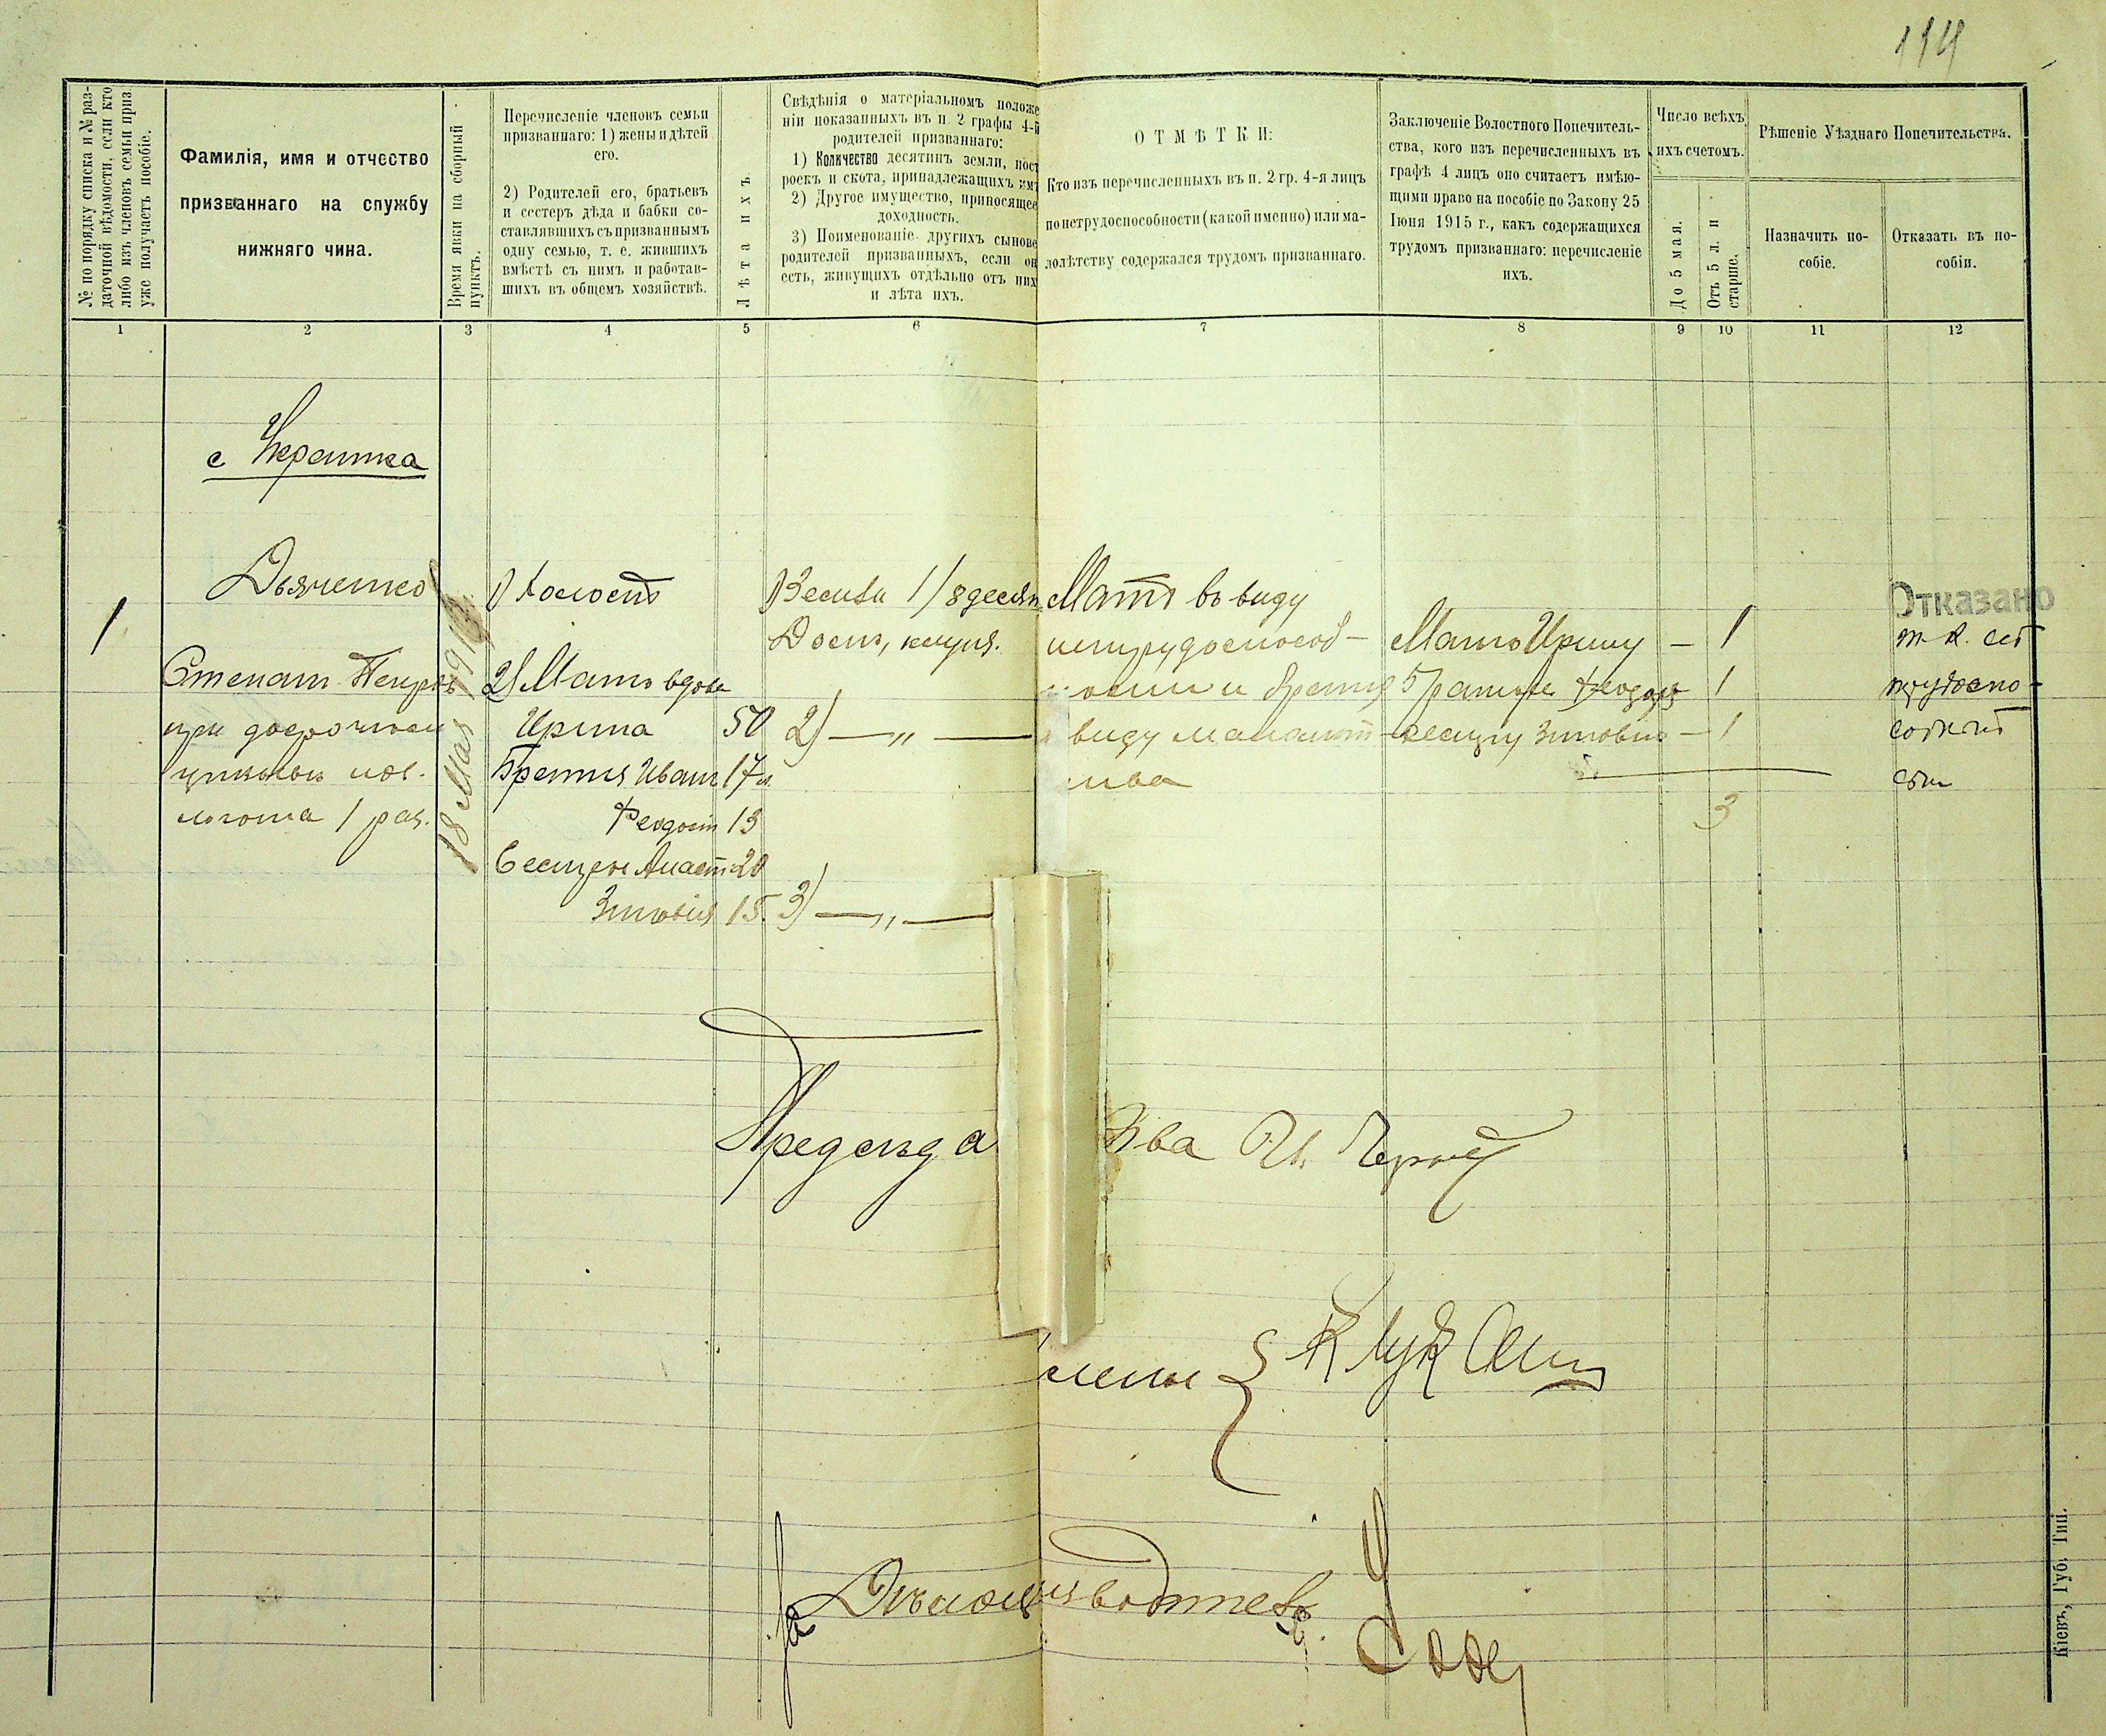 114
№ по порядку списка и № раз-
даточной вѣдомости, если кто
либо изъ членовъ семьи приз.
уже получаетъ пособіе.
Фамилія, имя и отчество
призваннаго на службу
нижняго чина.
Время явки на сборный
пунктъ.
Перечисленіе членовъ семьи
призваннаго: 1) жены и дѣтей
его.
2) Родителей его, братьевъ
и сестеръ дѣда и бабки со-
ставлявшихъ съ призваннымъ
одну семью, т. е. жившихъ
вмѣстѣ съ нимъ и работав-
шихъ въ общемъ хозяйствѣ.
Лѣта ихъ.
Свѣдѣнія о матеріальномъ положе
ніи показанныхъ въ п. 2 графы 4-й
родителей призваннаго:
1) Количество десятинъ земли, пост
роекъ и скота, принадлежащихъ имъ
2) Другое имущество, приносящее
доходность.
3) Поименованіе другихъ сынове
родителей призванныхъ, если он
есть, живущихъ отдѣльно отъ них
и лѣта ихъ.
ОТМѢТКИ:
Кто изъ перечисленныхъ въ п. 2 гр. 4-я лицъ
по нетрудоспособности (какой именно) или ма-
лолѣтству содержался трудомъ призваннаго.
Заключеніе Волостного Попечитель-
ства, кого изъ перечисленныхъ въ
графѣ 4 лицъ оно считаетъ имѣю-
щими право на пособіе по Закону 25
Іюня 1915 г., какъ содержащихся
трудомъ призваннаго: перечисленіе
ихъ.
Число всѣхъ
ихъ счетомъ.
До 5 мая.
Отъ 5 л. и
старше.
Рѣшеніе Уѣзднаго Попечительства.
Назначить по-
собіе.
Отказать въ по-
собіи.
1 2 3 4 5 6 7 8 9 10 11 12
с Украинка
1
Дьяченко
Степанъ Петров
при досрочномъ
льгота 1 раз.
18 Мая 191
1) Холостъ
2) Мать вдова
Ирина 50
Братья Иванъ 17 л.
Феодосій 13
Сестры Анаст. 20
Зиновія 15.
1) Земли 1/8 десят
Домъ, клуня.
2) — „ —
3) — „ —
Мать въ виду
нетрудоспособ-
ности и братья
виду малолѣт-
ства
Мать Ирину – 1
Братьевъ Феодос 1
сестру Зиновію – 1
3
Отказано
т. к. есть
трудоспо-
собный
сын
Председа
ва
члены
Дѣлопроизводитель
Кіевъ, Губ. Тип.